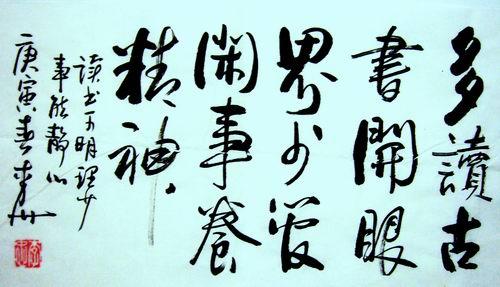 多讀古
書開眼
界少管
閑事養
精神
读书可明理少
事能静心
庚寅春